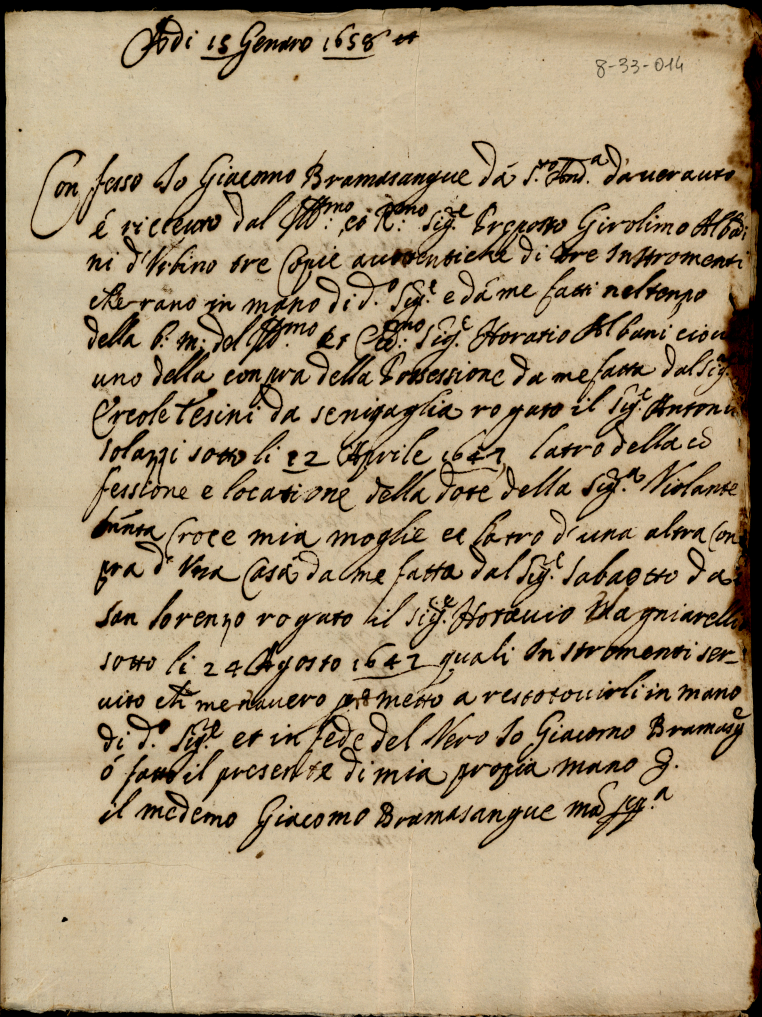 Adi 15 Genaro 1658 et
8-33-014
Confesso Io Giacomo Bramasangue da S.to Ang.a d'aver auto
é riceuto dal Ill.mo et R.mo Sig.e Preposto Girolimo Alba
ni d'Urbino tre Copie autentiche di tre Instromenti
che erano in mano di d.o Sig.e e da me fatti nel tenpo
della b: m: del Ill.mo et Ecc.mo Sig.e Horatio Albani cioe
uno della conpra della Possessione da me fatta dal Sig.e
Ercole Tesini da senigaglia rogato il Sig.e Antoni
Solazzi sotto li 22 Aprile 1647 latro della co
fessione e locatione della dote della Sig.a Violante
Croce mia moglie et latro d'una altra Con
pra d'Una Casa da me fatta dal Sig.e Sabaotto da
San lorenzo rogato il Sig.e Horatio Magniarelli
sotto li 24 Agosto 1647 quali Instromenti ser-
vito che me n'avero prometto a restotovirli in mano
di d.o Sig.e et in fede del Vero Io Giacomo Bramasg.e
ó fatto il presente di mia propia mano
il medemo Giacomo Bramasangue